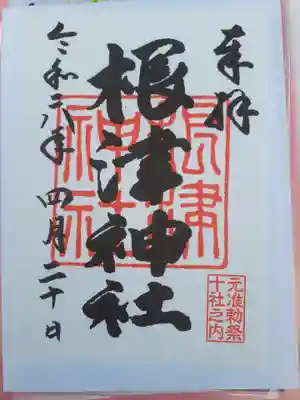 奉拝
根津神社
根津神社
元准勅祭
十社之内
令和六年 四月二十日